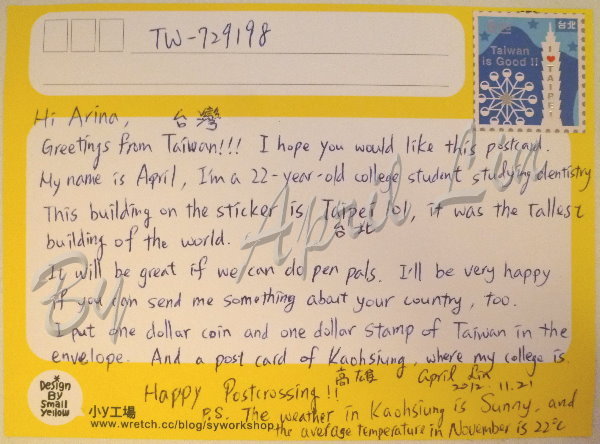 TW-729198
台北
Taiwan
is Good!!
I ♥ TAIPEI
Hi Arina,
台灣
Greetings from Taiwan!!! I hope you would like this postcard.
My name is April, I'm a 22-year-old college student studying dentistry
This building on the sticker is Taipei 101, it was the tallest
台北
building of the world.
It will be great if we can do pen pals. I'll be very happy
if you can send me something about your country, too.
I put one dollar coin and one dollar stamp of Taiwan in the
envelope. And a post card of Kaohsiung, where my college is.
高雄
April Lin
2012. 11. 21
Happy Postcrossing!!
P.S. The weather in Kaohsiung is Sunny, and
the average temperature in November is 22°C
Design
By
Small
Yellow
小y工場
www.wretch.cc/blog/syworkshop
By April Lin